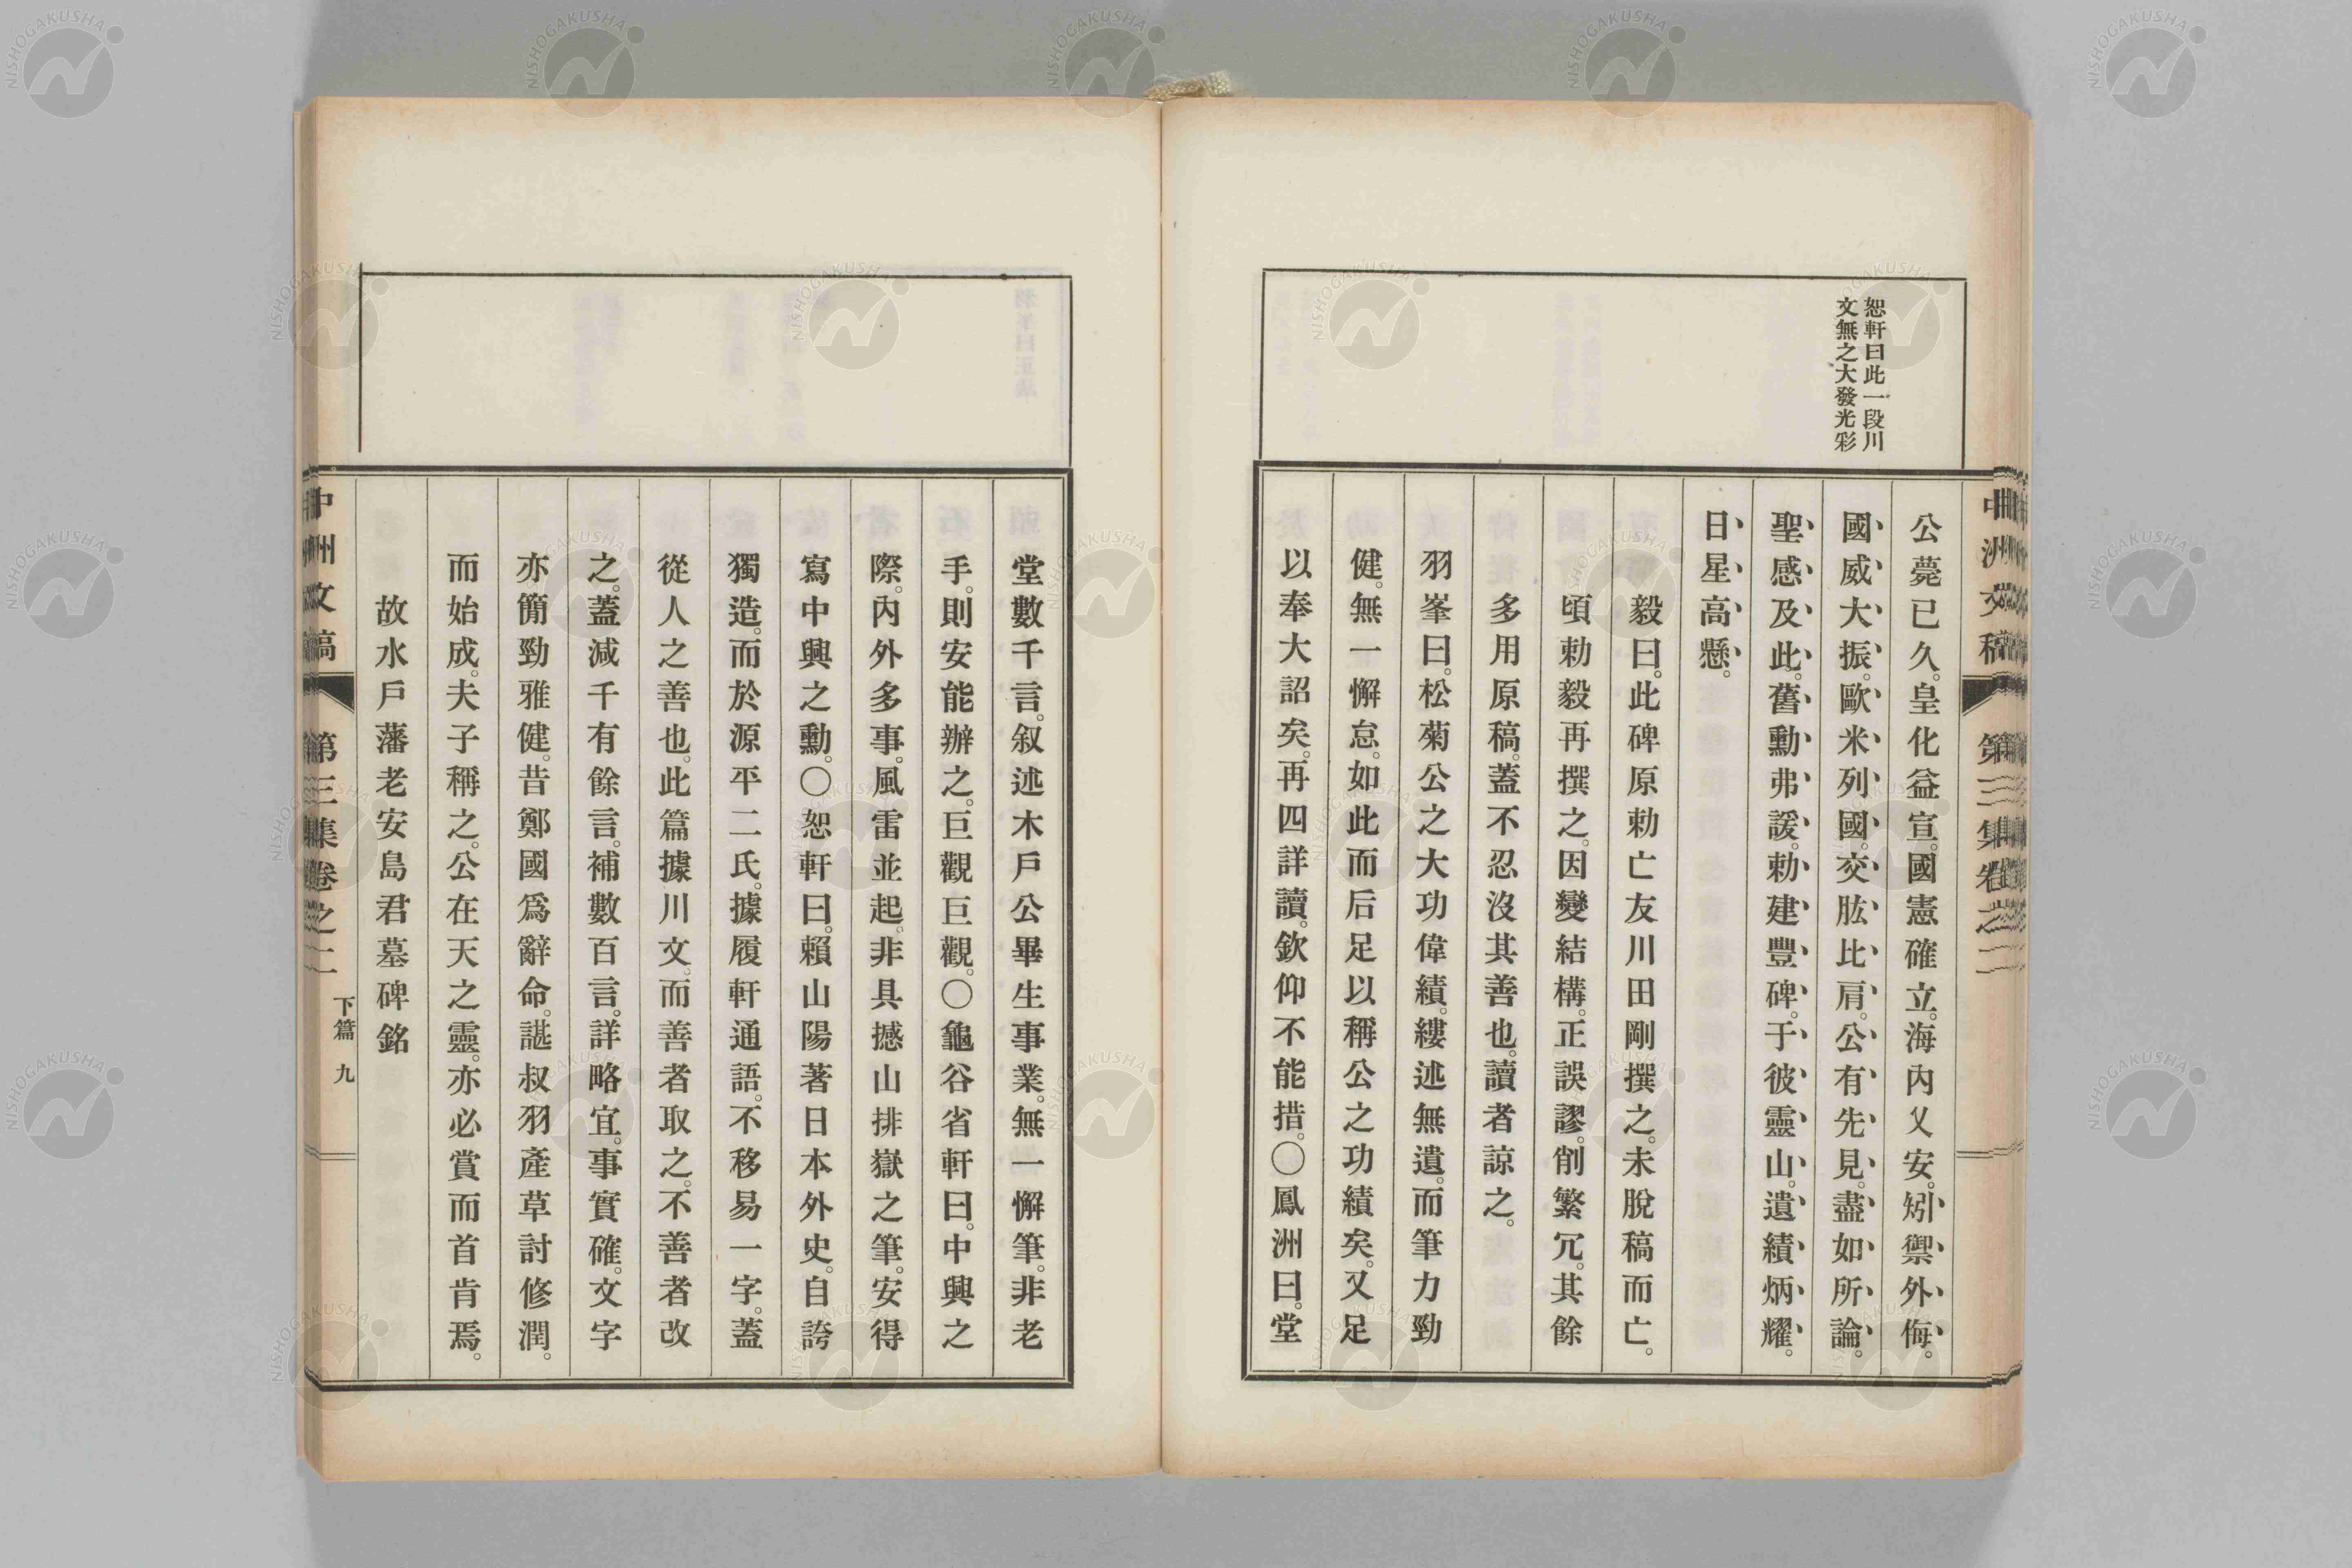 恕軒曰此一段川
文無之大發光彩
中洲文稿 第三集卷之二
公薨已久。皇化益宣。國憲確立。海內乂安。矧禦外侮。
國威大振。歐米列國。交肱比肩。公有先見。盡如所論。
聖感及此。舊勳弗諼。勅建豐碑。于彼靈山。遺績炳耀。
日星高懸。
毅曰。此碑原勅亡友川田剛撰之。未脫稿而亡。
頃勅毅再撰之。因變結構。正誤謬。削繁冗。其餘
多用原稿。蓋不忍沒其善也。讀者諒之。
羽峯曰。松菊公之大功偉績。縷述無遺。而筆力勁
健。無一懈怠。如此而后足以稱公之功績矣。又足
以奉大詔矣。再四詳讀。欽仰不能措。○鳳洲曰。堂
堂數千言。叙述木戶公畢生事業。無一懈筆。非老
手。則安能辦之。巨觀巨觀。○龜谷省軒曰。中興之
際。內外多事。風雷並起。非具撼山排嶽之筆。安得
寫中興之勳。○恕軒曰。賴山陽著日本外史。自誇
獨造。而於源平二氏。據履軒通語。不移易一字。蓋
從人之善也。此篇據川文。而善者取之。不善者改
之。蓋減千有餘言。補數百言。詳略宜。事實確。文字
亦簡勁雅健。昔鄭國爲辭命。諶叔羽產草討修潤。
而始成。夫子稱之。公在天之靈。亦必賞而首肯焉。
故水戶藩老安島君墓碑銘
中洲文稿 第三集卷之二 下篇 九
NISHOGAKUSHA